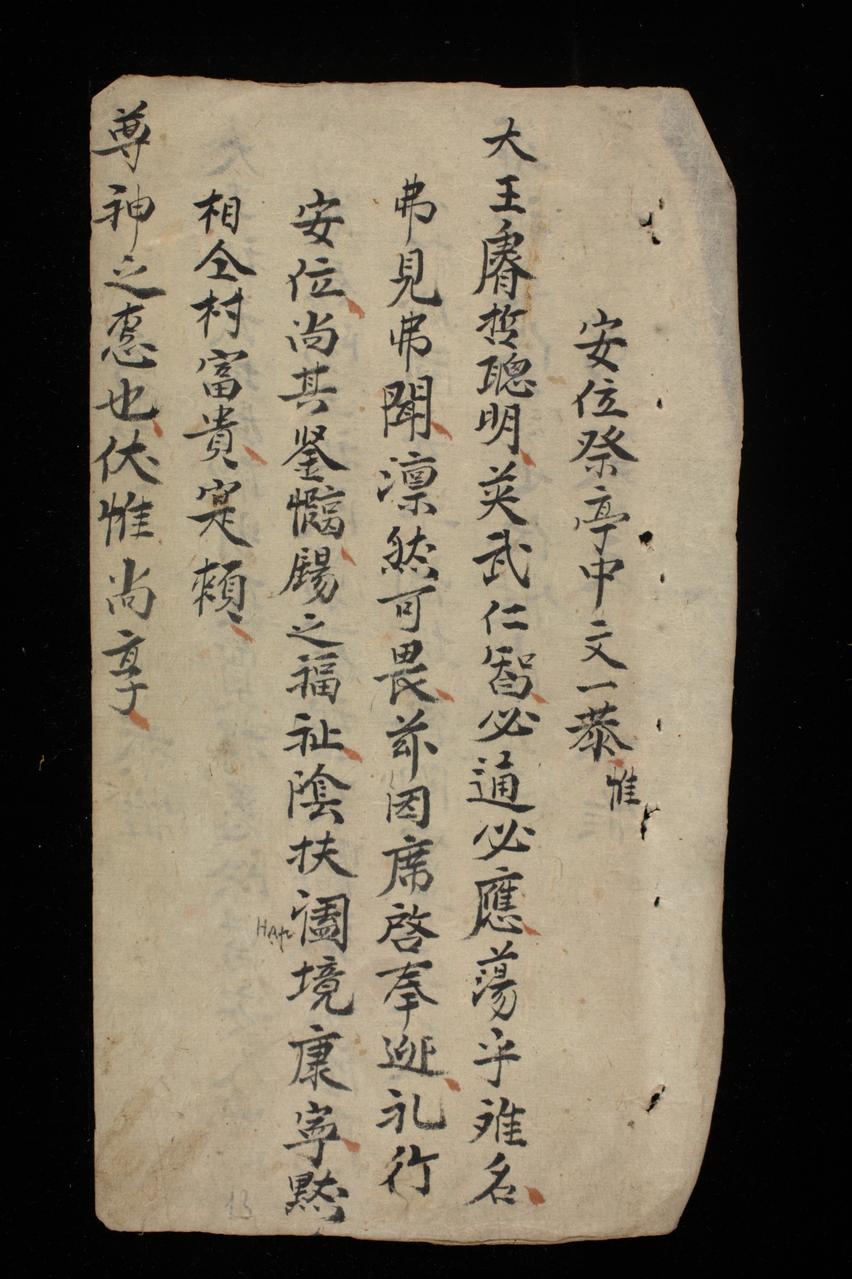 安位祭亭中文一恭惟
大王睿哲聰明英武仁智必通必應蕩乎难名
弗見弗聞凛然可畏茲因席啓奉迎礼行
安位尚其鉴愊賜之福祉陰扶闔境康寧默
相仝村富貴寔頼
尊神之惠也伏惟尚享
13